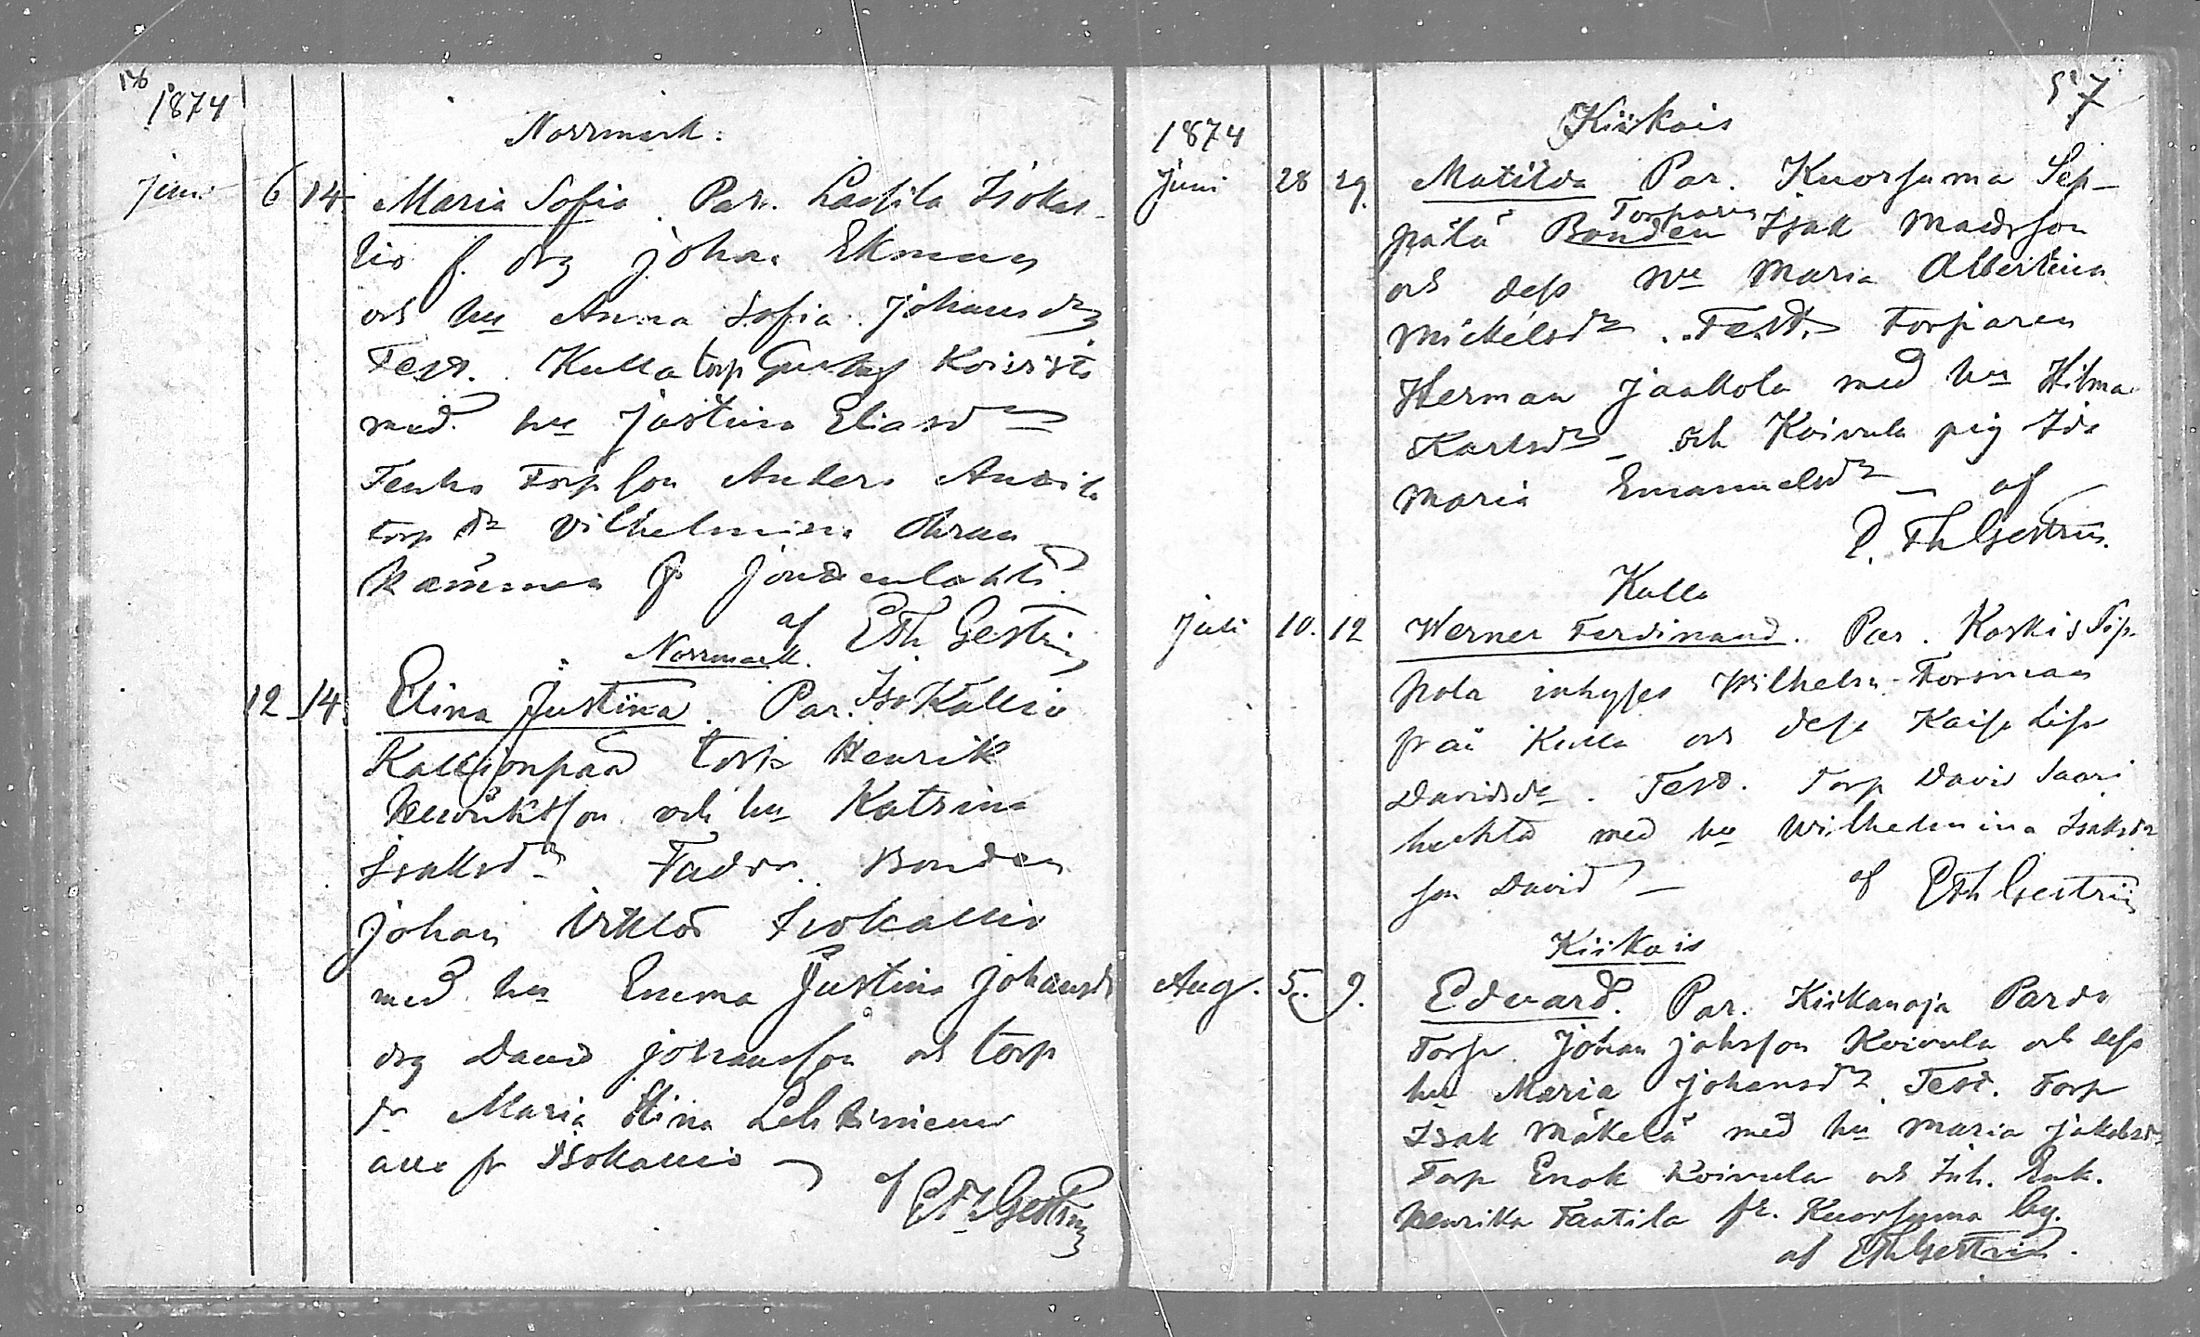 1874
Norrmark.
Juni 6 14 Maria Sofia. Par. Lassila Isokal-
lio f. drg Johan Ekman
och hu Anna Sofia Johansdr
Test. Kulla torp Gustaf Koivisto
med hu Justina Eliasdr
Torpson Anders
torp dr Vilhelmina
fr
af E Th Gestrin
Norrmark.
12 14 Elina Justina. Par. Isokallio
Kallionpää torp Henrik
Henriksson och hu Katrina
Isaksdr Faddr. Bonden
Johan Viktor Isokallio
med hu Emma Justina Johansdr
drg David Johansson och torp
dr Maria Stina Lehtiniemi
alla fr Isokallio
af E Th Gestrin
57
Kiikois
1874
Juni 28 29. Matilda Par. Kuorsuma Sep-
Torparen
pälä Bonden Isak Madsson
och dess Maria Albertina
Mickelsdr. Test. Torparen
Herman Jaakkola med hu Hilma
Karlsdr och Koivula pig Ida
Maria Emanuelsdr af
E. Th Gestrin.
Kulla
Juli 10. 12 Werner Ferdinand. Par. Koskis Pip-
pola inhyses Wilhelm Forsman
från Kulla och dess Kaisa Lisa
Davidsdr. Test. Torp David Saari
med hu Wilhelmina Isaksdr
son David af E Th Gestrin
Kiikois
Aug. 5. 9. Edvard. Par. Kiikanoja
Torp. Johan Johsson Koivula och dess
hu Maria Johansdr. Test. Torp
Isak Mäkelä med hu Maria Jakobsdr
Torp Enok Koivula och Inh. Enk.
Henrika Taatila fr. Kuorsuma by.
af E Th Gestrin.